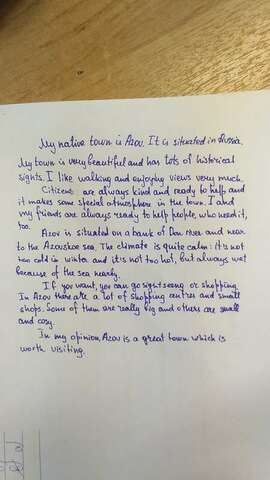 My native town is Azov. It is situated in Russia.
My town is very beautiful and has lots of historical
sights. I like walking and enjoying views very much.
Citizens are always kind and ready to help and
it makes some special atmosphere in the town. I and
my friends are always ready to help people, who need it,
too.
Azov is situated on a bank of Don river and near
to the Azovskoe sea. The climate is quite calm: it's not
too cold in winter and it's not too hot, but always wet
because of the sea nearby.
If you want, you can go sightseeing or shopping.
In Azov there are a lot of shopping centres and small
shops. Some of them are really big and others are small
and cosy.
In my opinion, Azov is a great town which is
worth visiting.